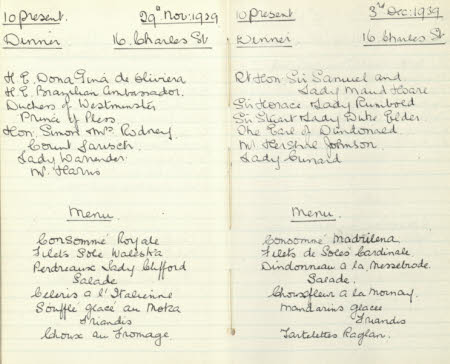 10 present. 29th Nov: 1939
Dinner 16 Charles St
H E. Dona Gina de Oliviera
H. E. Brazilian Ambassador.
Duchess of Westminster
Prince of Pless
Hon: Simon Mrs Rodney.
Count
Lady Warrender.
Mr. Harris
Menu.
Consommé Royale
Filets Sole Waleska
Perdreaux Lady Clifford
Salade
Celeris a l'Italienne
Souffle glacé au Moka
Friandis
Choux au Fromage.
10 present 3rd Dec: 1939
Dinner 16 Charles St
Rt Hon Sir Samuel and
Lady Maud Hoare
Sir Horace Lady Rumbold
Sir Stuart Lady Duke Elder
The Earl of Dundonald.
Mr Herschel Johnson.
Lady Cunard
Menu.
Consomé Madrilena
Filets de Soles Cardinale
Dindonneau a la Nesselrode.
Salade.
Chouxfleur a la Mornay.
Mandarins glaces
Friandis
Tartelettes Raglan.